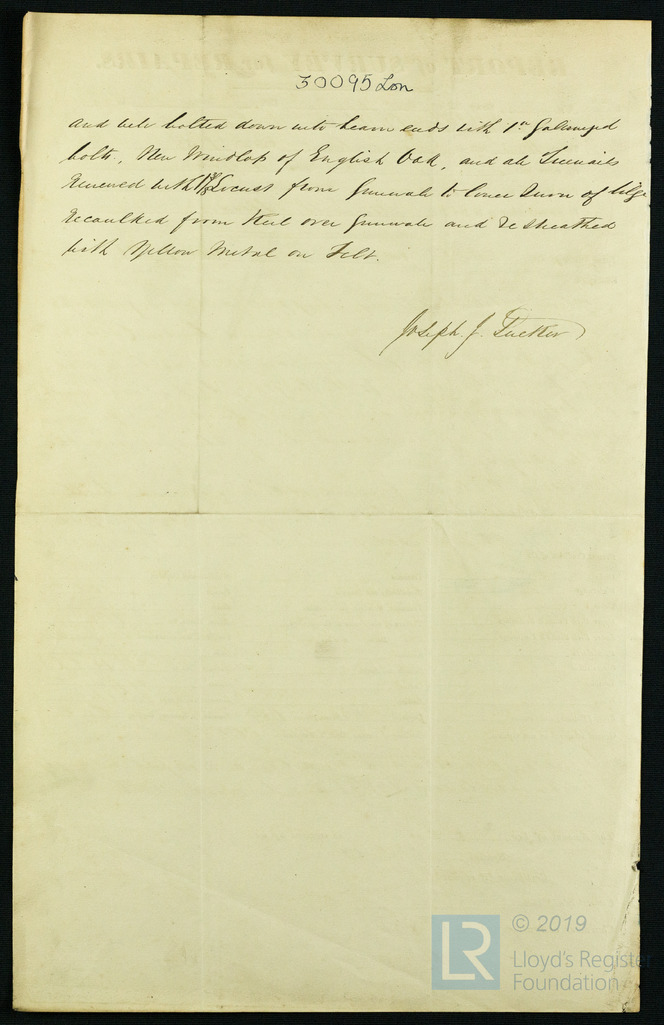 REPORT of SURVEY for REPAIRS.
30095 Lon
and well bolted down into beam ends with 1in Galvanized
bolts, New Windlass of English Oak, and all Treenails
renewed with Locust from Gunwale to lower turn of bilge
recaulked from Keel over Gunwale and resheathed
with Yellow Metal on Felt.
Joseph. J. Tucker
LR
© 2019
Lloyd's Register
Foundation